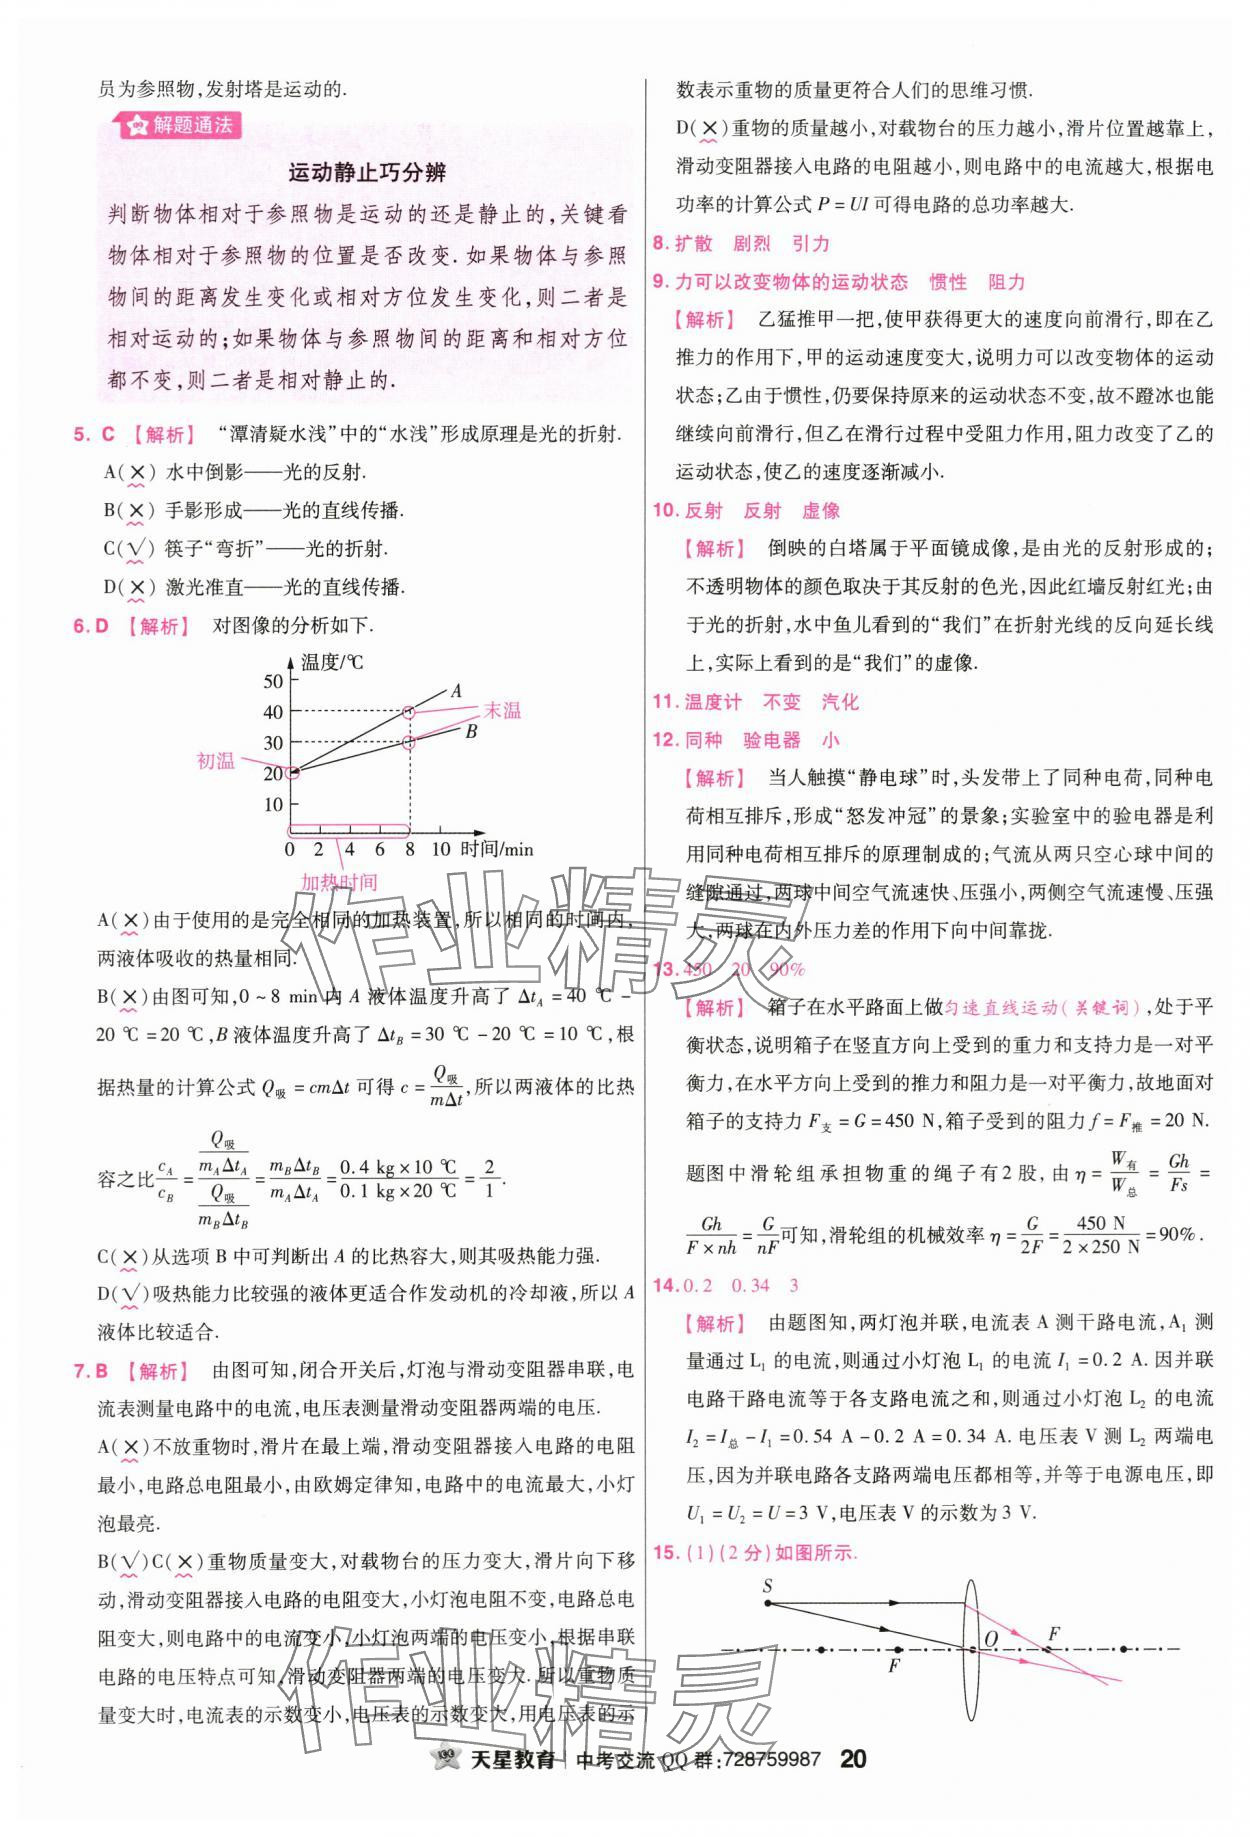 员为参照物,发射塔是运动的.
解题通法
运动静止巧分辨
判断物体相对于参照物是运动的还是静止的,关键看
物体相对于参照物的位置是否改变.如果物体与参照
物间的距离发生变化或相对方位发生变化,则二者是
相对运动的;如果物体与参照物间的距离和相对方位
都不变,则二者是相对静止的.
5. C 【解析】 “潭清疑水浅”中的“水浅”形成原理是光的折射.
A(×) 水中倒影——光的反射.
B(×) 手影形成——光的直线传播.
C(√) 筷子“弯折”——光的折射.
D(×) 激光准直——光的直线传播.
6. D 【解析】 对图像的分析如下.
温度/℃
50
40
30
20
10
A
B
末温
初温
0 2 4 6 8 10 时间/min
加热时间
A(×)由于使用的是完全相同的加热装置,所以相同的时间内,
两液体吸收的热量相同.
B(×)由图可知,0~8 min内 A 液体温度升高了 Δt_A=40 ℃-
20 ℃=20 ℃,B 液体温度升高了 Δt_B=30 ℃-20 ℃=10 ℃,根
据热量的计算公式 Q吸=cmΔt 可得 c=Q吸/mΔt,所以两液体的比热
容之比 c_A/c_B=(Q吸/m_AΔt_A)/(Q吸/m_BΔt_B)=m_BΔt_B/m_AΔt_A=0.4 kg×10 ℃/0.1 kg×20 ℃=2/1.
C(×)从选项 B 中可判断出 A 的比热容大,则其吸热能力强.
D(√)吸热能力比较强的液体更适合作发动机的冷却液,所以 A
液体比较适合.
7. B 【解析】 由图可知,闭合开关后,灯泡与滑动变阻器串联,电
流表测量电路中的电流,电压表测量滑动变阻器两端的电压.
A(×)不放重物时,滑片在最上端,滑动变阻器接入电路的电阻
最小,电路总电阻最小,由欧姆定律知,电路中的电流最大,小灯
泡最亮.
B(√)C(×)重物质量变大,对载物台的压力变大,滑片向下移
动,滑动变阻器接入电路的电阻变大,小灯泡电阻不变,电路总电
阻变大,则电路中的电流变小,小灯泡两端的电压变小,根据串联
电路的电压特点可知,滑动变阻器两端的电压变大.所以重物质
量变大时,电流表的示数变小,电压表的示数变大,用电压表的示
数表示重物的质量更符合人们的思维习惯.
D(×)重物的质量越小,对载物台的压力越小,滑片位置越靠上,
滑动变阻器接入电路的电阻越小,则电路中的电流越大,根据电
功率的计算公式 P=UI 可得电路的总功率越大.
8. 扩散 剧烈 引力
9. 力可以改变物体的运动状态 惯性 阻力
【解析】 乙猛推甲一把,使甲获得更大的速度向前滑行,即在乙
推力的作用下,甲的运动速度变大,说明力可以改变物体的运动
状态;乙由于惯性,仍要保持原来的运动状态不变,故不蹬冰也能
继续向前滑行,但乙在滑行过程中受阻力作用,阻力改变了乙的
运动状态,使乙的速度逐渐减小.
10. 反射 反射 虚像
【解析】 倒映的白塔属于平面镜成像,是由光的反射形成的;
不透明物体的颜色取决于其反射的色光,因此红墙反射红光;由
于光的折射,水中鱼儿看到的“我们”在折射光线的反向延长线
上,实际上看到的是“我们”的虚像.
11. 温度计 不变 汽化
12. 同种 验电器 小
【解析】 当人触摸“静电球”时,头发带上了同种电荷,同种电
荷相互排斥,形成“怒发冲冠”的景象;实验室中的验电器是利
用同种电荷相互排斥的原理制成的;气流从两只空心球中间的
缝隙通过,两球中间空气流速快、压强小,两侧空气流速慢、压强
大,两球在内外压力差的作用下向中间靠拢.
13. 450 20 90%
【解析】 箱子在水平路面上做匀速直线运动(关键词),处于平
衡状态,说明箱子在竖直方向上受到的重力和支持力是一对平
衡力,在水平方向上受到的推力和阻力是一对平衡力,故地面对
箱子的支持力 F支=G=450 N,箱子受到的阻力 f=F推=20 N.
题图中滑轮组承担物重的绳子有2股,由 η=W有/W总=Gh/Fs=
Gh/F×nh=G/nF可知,滑轮组的机械效率 η=G/2F=450 N/2×250 N=90%.
14. 0.2 0.34 3
【解析】 由题图知,两灯泡并联,电流表 A 测干路电流,A₁ 测
量通过 L₁ 的电流,则通过小灯泡 L₁ 的电流 I₁=0.2 A.因并联
电路干路电流等于各支路电流之和,则通过小灯泡 L₂ 的电流
I₂=I总-I₁=0.54 A-0.2 A=0.34 A.电压表 V 测 L₂ 两端电
压,因为并联电路各支路两端电压都相等,并等于电源电压,即
U₁=U₂=U=3 V,电压表 V 的示数为 3 V.
15. (1)(2分)如图所示.
S
F
O
F
作业精灵
作业精灵
天星教育 中考交流 QQ 群:728759987 20